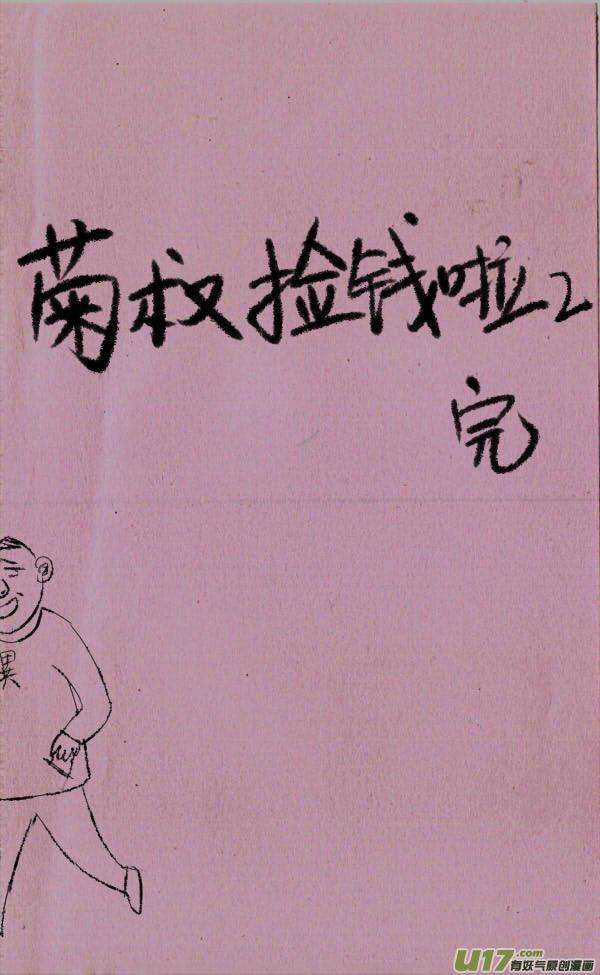 菊叔捡钱啦2
完
異
U17.com
有妖气原创漫画